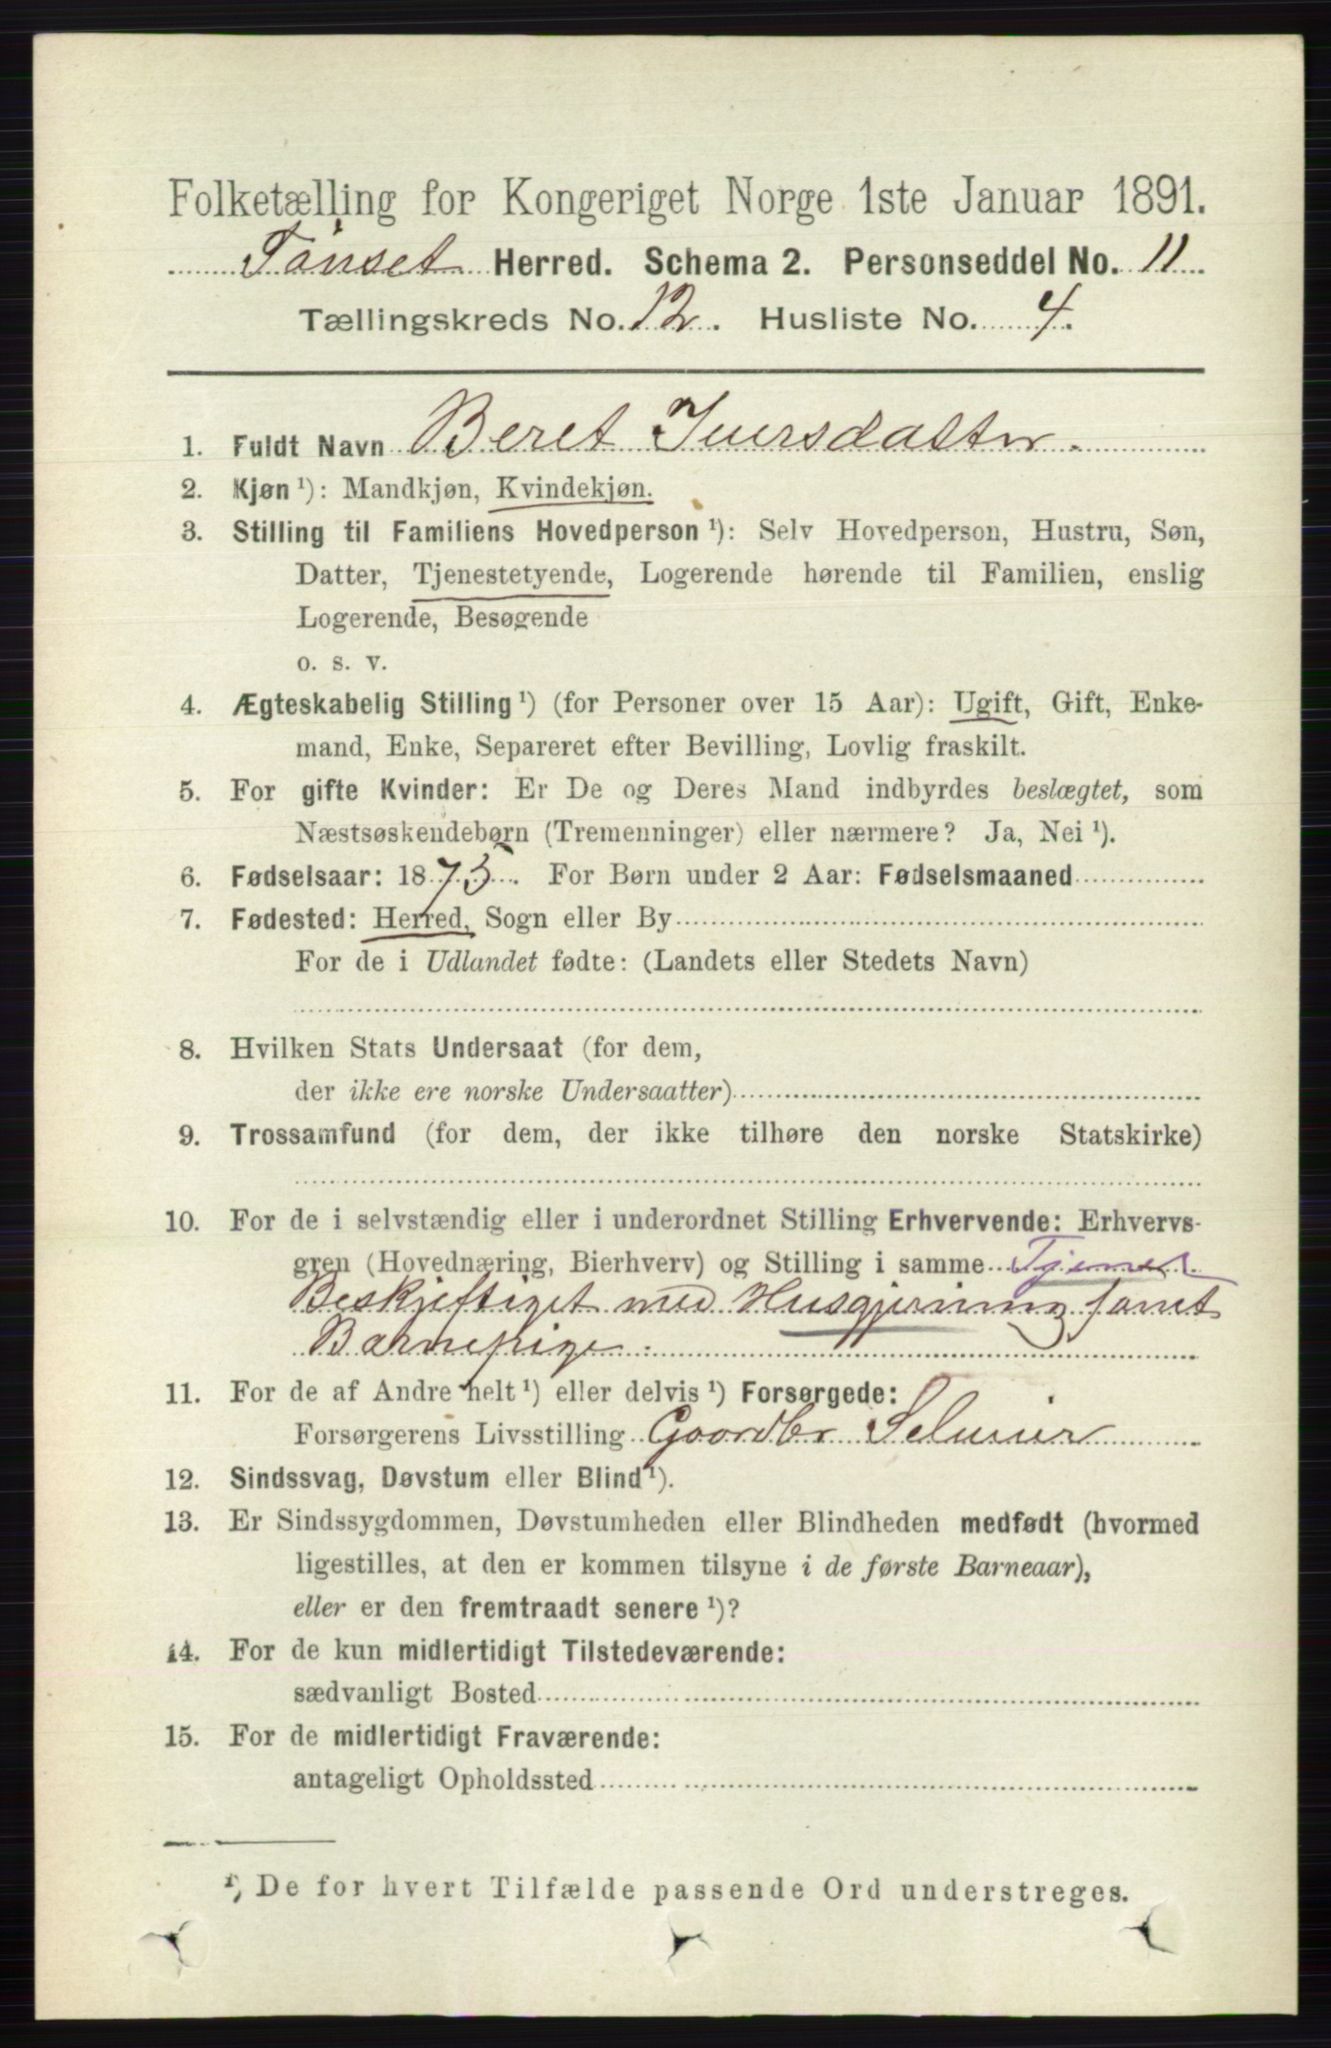 Folketælling for Kongeriget Norge 1ste Januar 1891.
Tönset Herred. Schema 2. Personseddel No. 11
Tællingskreds No. 12. Husliste No. 4.
1. Fuldt Navn Beret Iversdatter.
2. Kjøn ¹): Mandkjøn, Kvindekjøn.
3. Stilling til Familiens Hovedperson ¹): Selv Hovedperson, Hustru, Søn,
Datter, Tjenestetyende, Logerende hørende til Familien, enslig
Logerende, Besøgende
o. s. v.
4. Ægteskabelig Stilling ¹) (for Personer over 15 Aar): Ugift, Gift, Enke-
mand, Enke, Separeret efter Bevilling, Lovlig fraskilt.
5. For gifte Kvinder: Er De og Deres Mand indbyrdes beslægtet, som
Næstsøskendebørn (Tremenninger) eller nærmere? Ja, Nei ¹).
6. Fødselsaar: 1873. For Børn under 2 Aar: Fødselsmaaned
7. Fødested: Herred, Sogn eller By
For de i Udlandet fødte: (Landets eller Stedets Navn)
8. Hvilken Stats Undersaat (for dem,
der ikke ere norske Undersaatter)
9. Trossamfund (for dem, der ikke tilhøre den norske Statskirke)
10. For de i selvstændig eller i underordnet Stilling Erhvervende: Erhvervs-
gren (Hovednæring, Bierhverv) og Stilling i samme
Beskjeftiget med Husgjerning samt
Barnepige.
11. For de af Andre helt ¹) eller delvis ¹) Forsørgede:
Forsørgerens Livsstilling Gaardbr Selveier
12. Sindssvag, Døvstum eller Blind ¹).
13. Er Sindssygdommen, Døvstumheden eller Blindheden medfødt (hvormed
ligestilles, at den er kommen tilsyne i de første Barneaar),
eller er den fremtraadt senere ¹)?
14. For de kun midlertidigt Tilstedeværende:
sædvanligt Bosted
15. For de midlertidigt Fraværende:
antageligt Opholdssted
¹) De for hvert Tilfælde passende Ord understreges.